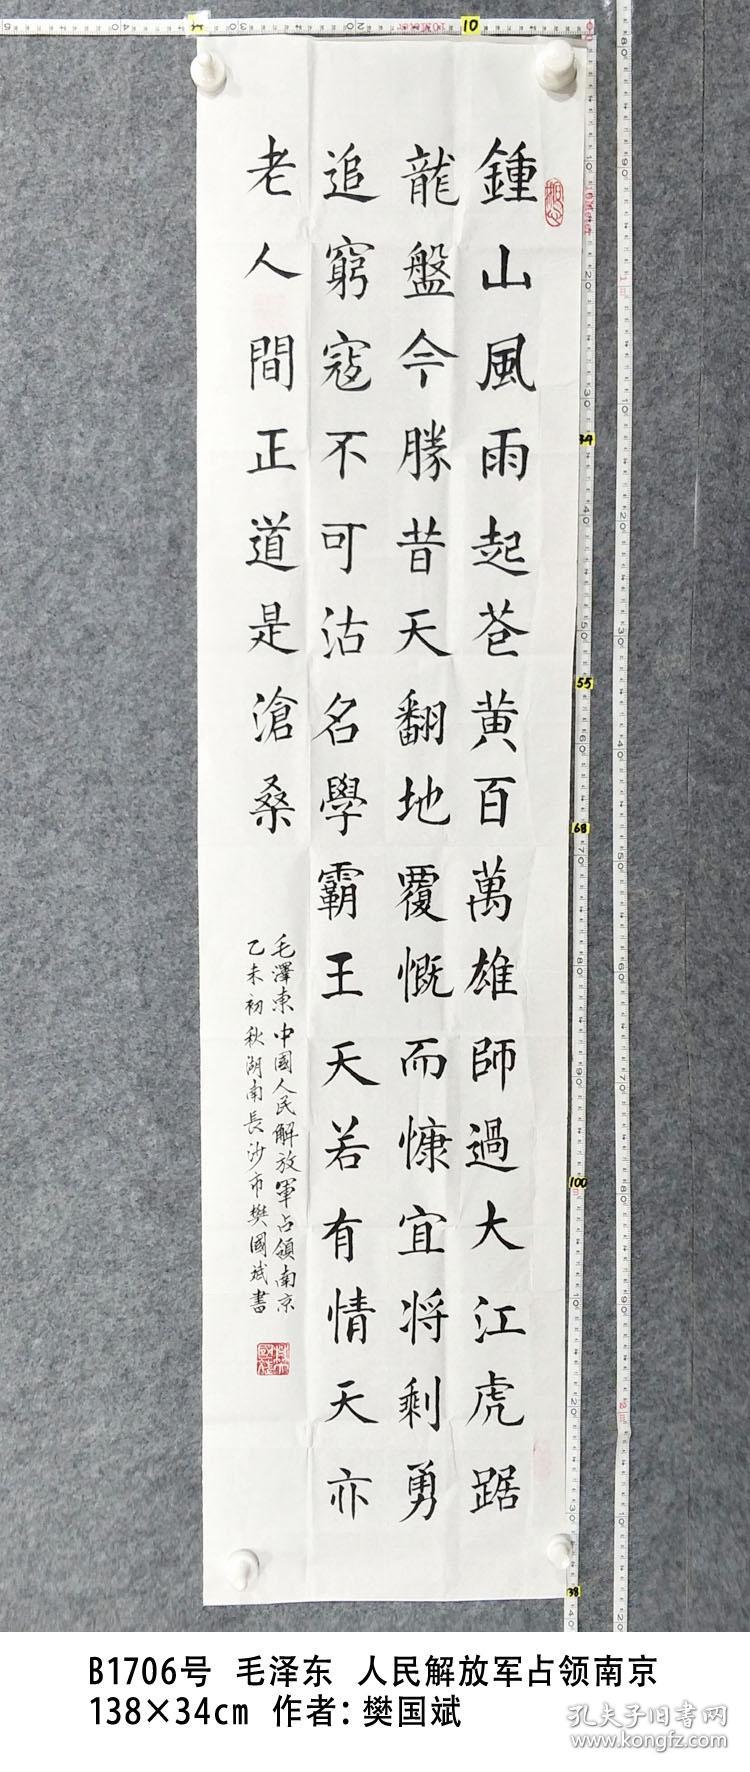 鍾山風雨起苍黄百萬雄師過大江虎踞
龍盤今勝昔天翻地覆慨而慷宜将剩勇
追窮寇不可沽名學霸王天若有情天亦
老人間正道是滄桑
毛澤東中國人民解放軍占領南京
乙未初秋湖南長沙市樊國斌書
B1706号 毛泽东 人民解放军占领南京
138×34cm 作者：樊国斌
孔夫子旧书网
www.kongfz.com